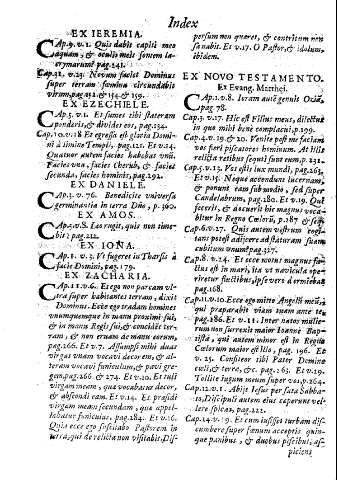 Index
EX IEREMIA.
CAp.9. v.1. Quis dabit capiti meo
aquam, & oculis meis fontem la-
crymarum? pag.241.
Cap.31. v.23. Novum faciet Dominus
super terram fœmina circundabit
virum, pag.132. & 154 & 159.
EX EZECHIELE.
CAp.5. v.1. Et sumes tibi stateram
ponderis, & divides eos, pag.134.
Cap.10. v.18 Et egressa est gloria Domi-
ni à limine Templi, pag.122. Et v.24.
Quatuor autem facies habebat unũ.
Facies una, facies Cherub, & facies
secunda, facies hominis, pag.292.
EX DANIELE.
CAp.3. v. 76. Benedicite vniversa
germinantia in terra Dño, p.360.
EX AMOS.
CAp.3. v.8. Leo rugit, quis non time-
bit? pag.212.
EX IONA.
CAp.1. v. 3. Vt fugeret in Tharsis à
facie Domini, pag.179.
EX ZACHARIA.
CAp 11. v.6. Et ego non parcam vl-
tra super habitantes terram, dixit
Dominus. Ecce ego tradam homines
unumquemque in manu proximi sui,
& in manu Regis sui, & concidẽt ter-
ram, & non eruam de manu eorum,
pag.266. Et v.7. Assumpsi mihi duas
virgas vnam vocavi decorem, & al-
teram vocavi funiculum, & pavi gre-
gem, pag.266. & 274. Et v.10. Et tuli
virgam meam, quæ vocabatur decor,
& abscondi eam. Et v.14. Et præscidi
virgam meam secundam, quæ appel-
labatur funiculus, pag.284. Et v.16
Quia ecce ego suscitabo Pastorem in
terra, qui derelicta non visitabit, Dis-
persum non quæret, & contritum non
sanabit. Et v.17. O Pastor, & idolum,
ibidem.
EX NOVO TESTAMENTO.
Ex Evang. Matthei.
CAp.1. v.8. Ioram autẽ genuit Oziã,
pag 78.
Cap.3. v.17. Hic est Filius meus, dilectus
in quo mihi bene complacui, p.199.
Cap.4. v.19. & 20. Venite post me faciam
vos fieri piscatores hominum. At illi
relictis retibus sequuti sunt eum, p.231.
Cap.5. v.13. Vos estis lux mundi, pag.263,
Et v.15. Neque accendunt lucernam,
& ponunt eam sub modio, sed super
Candelabrum, pag.280. Et v.19. Qui
fecerit, & docuerit hic magnus voca-
bitur in Regno Cælorũ, p.287 & 295
Cap.6. v.27. Quis autem vestrum cogi-
tans potest adijcere ad staturam suam
cubitum unum? pag.327.
Cap.8. v.24. Et ecce motus magnus fa-
ctus est in mari, ita ut navicula ope-
riretur fluctibus, ipse vero dormiebat
pag.168.
Cap.11. v.10. Ecce ego mitto Angelũ meũ,
qui præparabit viam tuam ante te
pag.186. Et v.11. Inter natos mulie-
rum non surrexit maior Ioanne Bap-
tista, qui autem minor est in Regno
Cælorum maior est illo, pag. 196. Et
v.25. Confiteor tibi Pater Domine
cæli, & terræ, &c. pag.263. Et v.29.
Tollite iugum meum super vos, p.264.
Cap.12. v.1. Abijt Iesus per sata Sabba-
to, Discipuli autem eius cæperunt vel-
lere spicas, pag.222.
Cap.14. v.19. Et cum iussisset turbam dis-
cumbere super fœnum acceptis quin-
que panibus, & duobus piscibus, as-
piciens